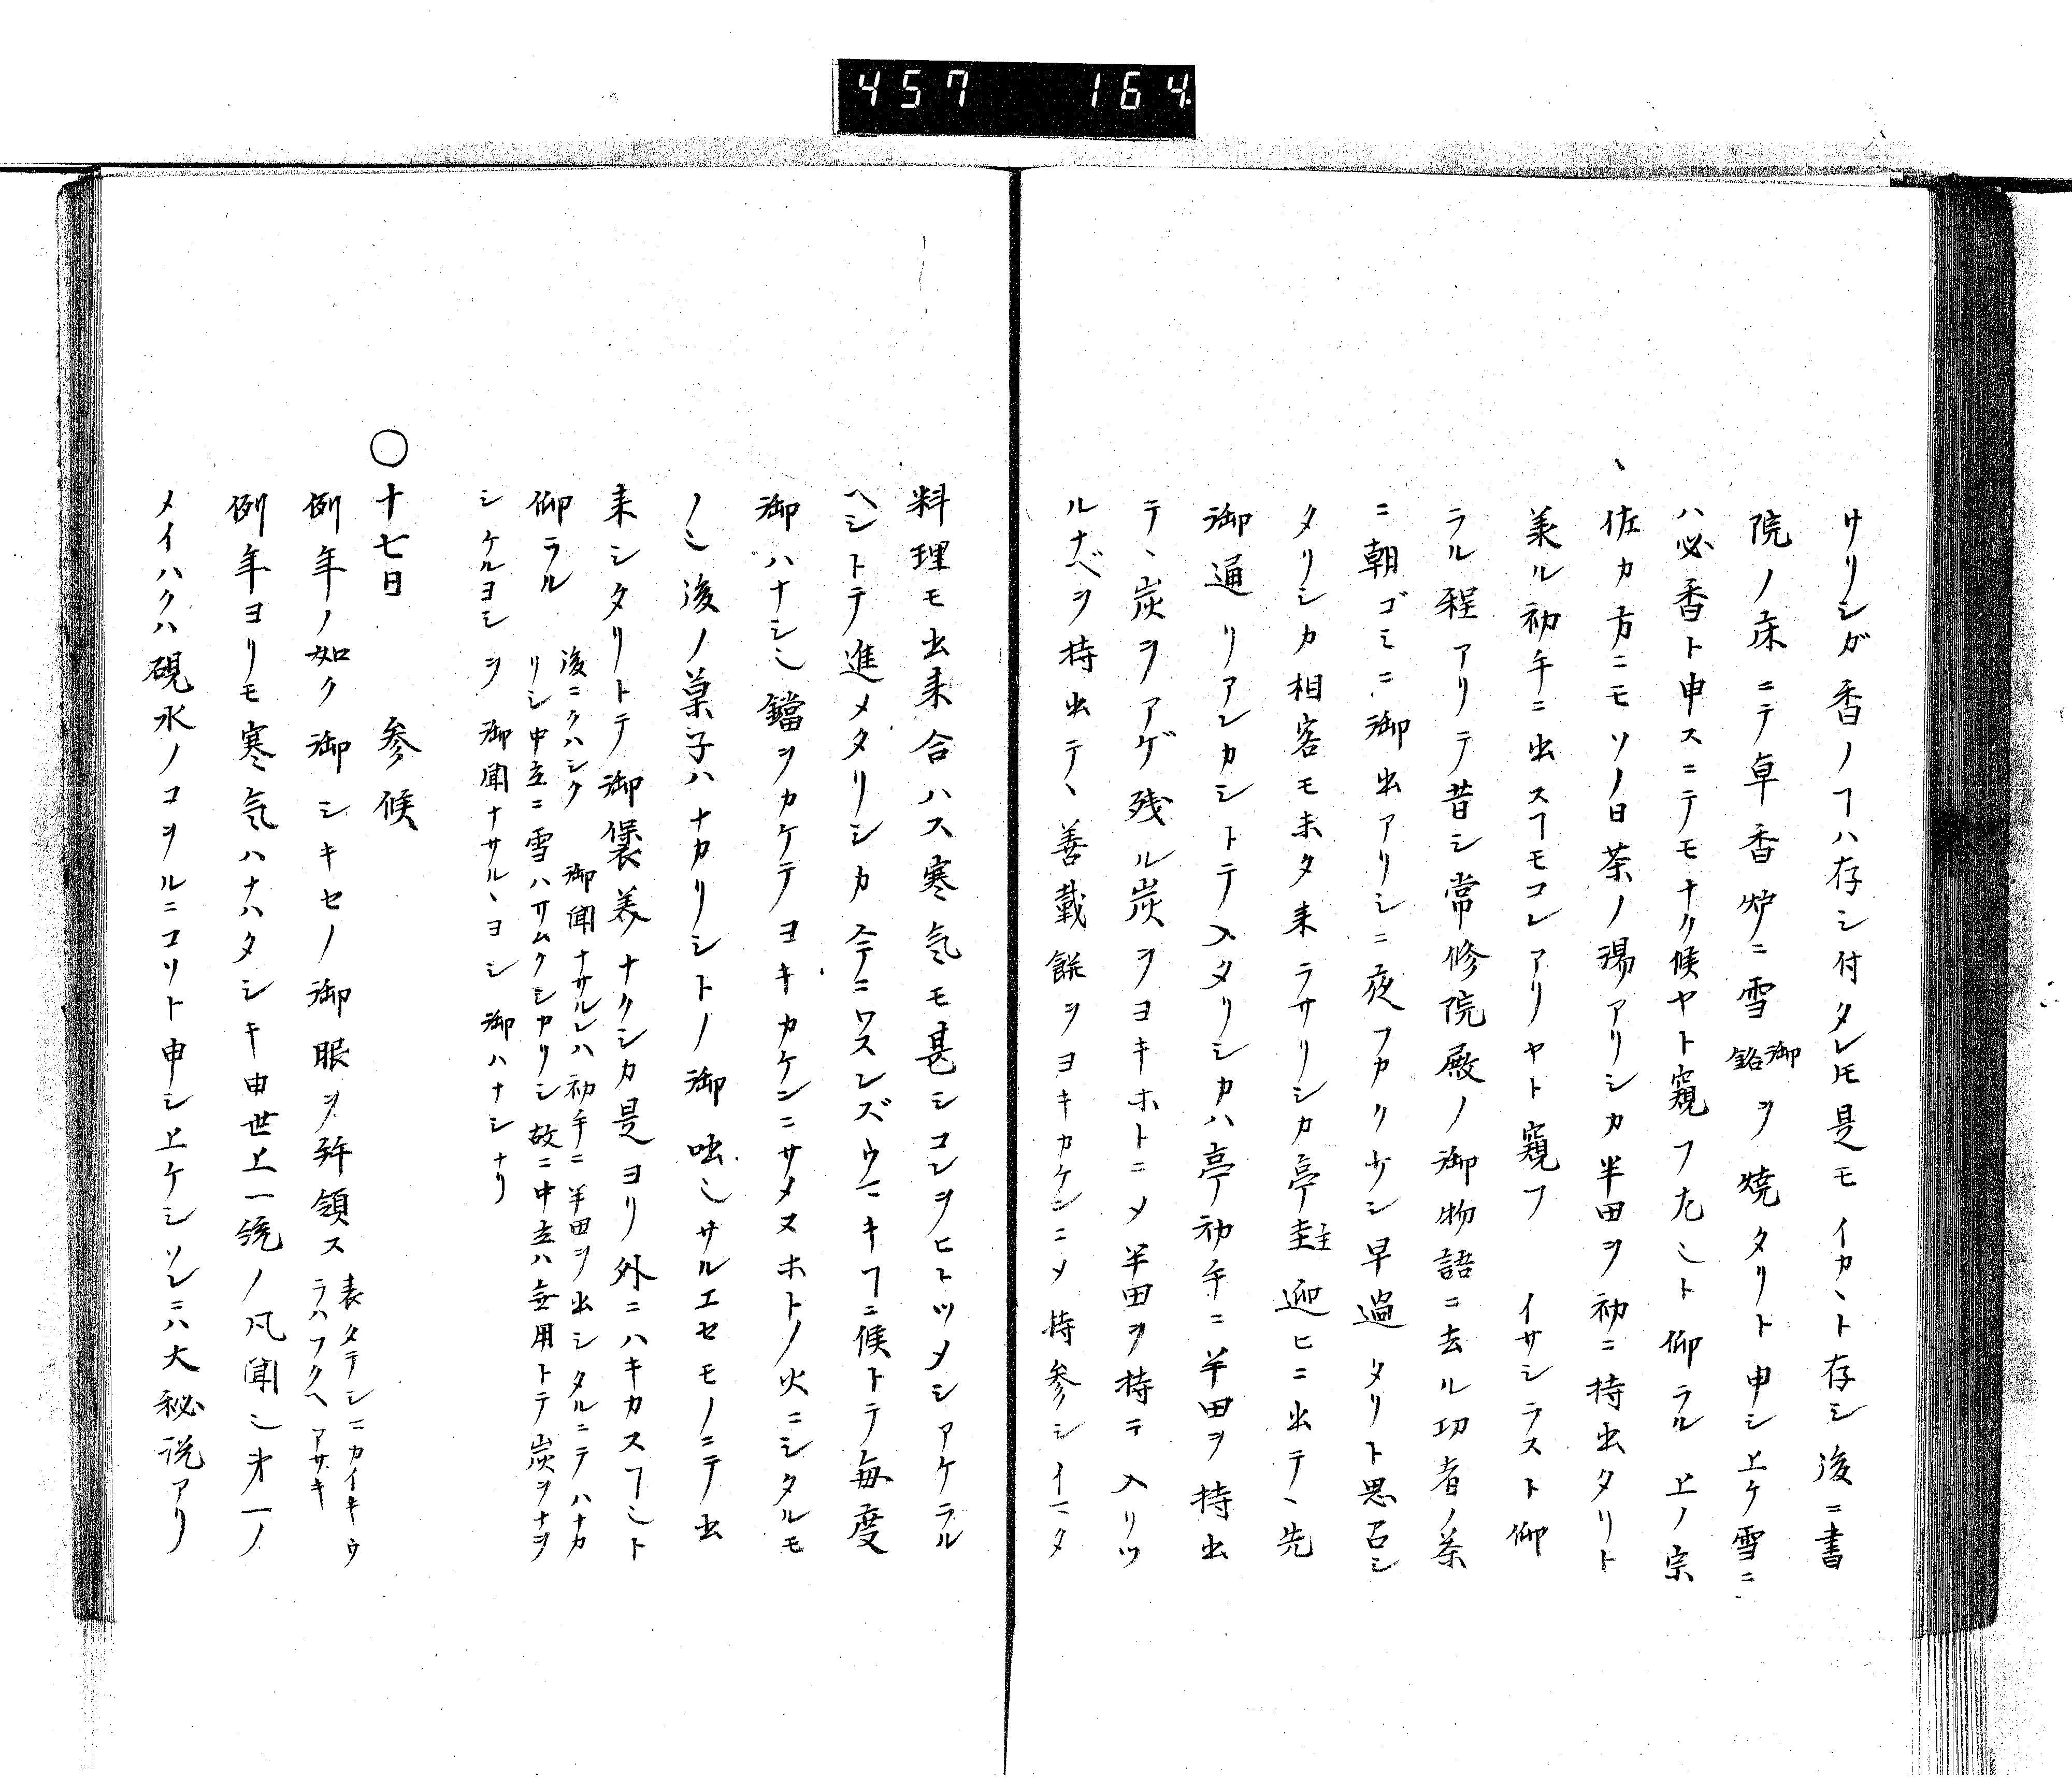 457 164
サリシガ香ノヿハ存シ付タレ𪜈是モイカヽト存シ後ニ書
院ノ床ニテ卓香炉ニ雪御銘ヲ焼タリト申シ上ケ雪ニ
ハ必香ト申スニテモナク候ヤト窺フ尤〻ト仰ラル上ノ宗
佐カ方ニモソノ日茶ノ湯アリシカ半田ヲ初ニ持出タリト
義ル初手ニ出スヿモコレアリヤト窺フ イサシラスト仰
ラル程アリテ昔シ常修院殿ノ御物語ニ去ル功者ノ茶
ニ朝ゴミニ御出アリシニ夜フカク少シ早過タリト思召シ
タリシカ相客モ未タ来ラサリシカ亭主迎ヒニ出テヽ先
御通リアレカシトテ入タリシカハ亭初手ニ半田ヲ持出
テヽ炭ヲアゲ残ル炭ヲヨキホトニメ半田ヲ持テ入リツ
ルナベヲ持出テヽ善載餅ヲヨキカケンニメ持参シイマタ
料理モ出来合ハス寒気モ甚シコレヲヒトツメシアケラル
ヘシトテ進メタリシカ今ニワスレズウマキヿニ候トテ毎度
御ハナシ也鐺ヲカケテヨキカケンニサメヌホトノ火ニシタルモ
ノ也後ノ菓子ハナカリシトノ御咄也サルエセモノニテ出
来シタリトテ御褒美ナクシカ是ヨリ外ニハキカスヿ也ト
仰ラル 後ニクハシク御聞ナサルレハ初手ニ半田ヲ出シタルニテハナカ
リシ中立ニ雪ハサムクシカリシ故ニ中立ハ無用トテ炭ヲナヲ
シケルヨシヲ御聞ナサルヽヨシ御ハナシナリ
〇十七日 参候
例年ノ如ク御シキセノ御服ヲ拝領ス 表タテシニカイキウ
ラハフクヘアサキ
例年ヨリモ寒気ハナハタシキ由世上一統ノ凡聞也才一ノ
メイハクハ硯水ノコヲルニコリト申シ上ケシソレニハ大秘説アリ